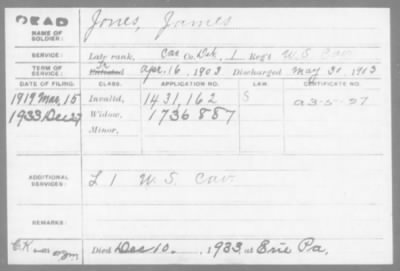 DEAD
NAME OF SOLDIER: Jones, James
SERVICE: Late rank, Co. 1 Reg't U.S. Cav.
TERM OF SERVICE: Enlisted Apr. 16, 1903 Discharged May 30, 1903
DATE OF FILING. CLASS. APPLICATION NO. LAW. CERTIFICATE NO.
1919 Mar. 15 Invalid, 1431,162 S
1933 Dec 27 Widow, 1736887
Minor,
ADDITIONAL SERVICES: L 1 U.S. Cav.
REMARKS:
Died Dec 10, 1933, at Erie Pa.